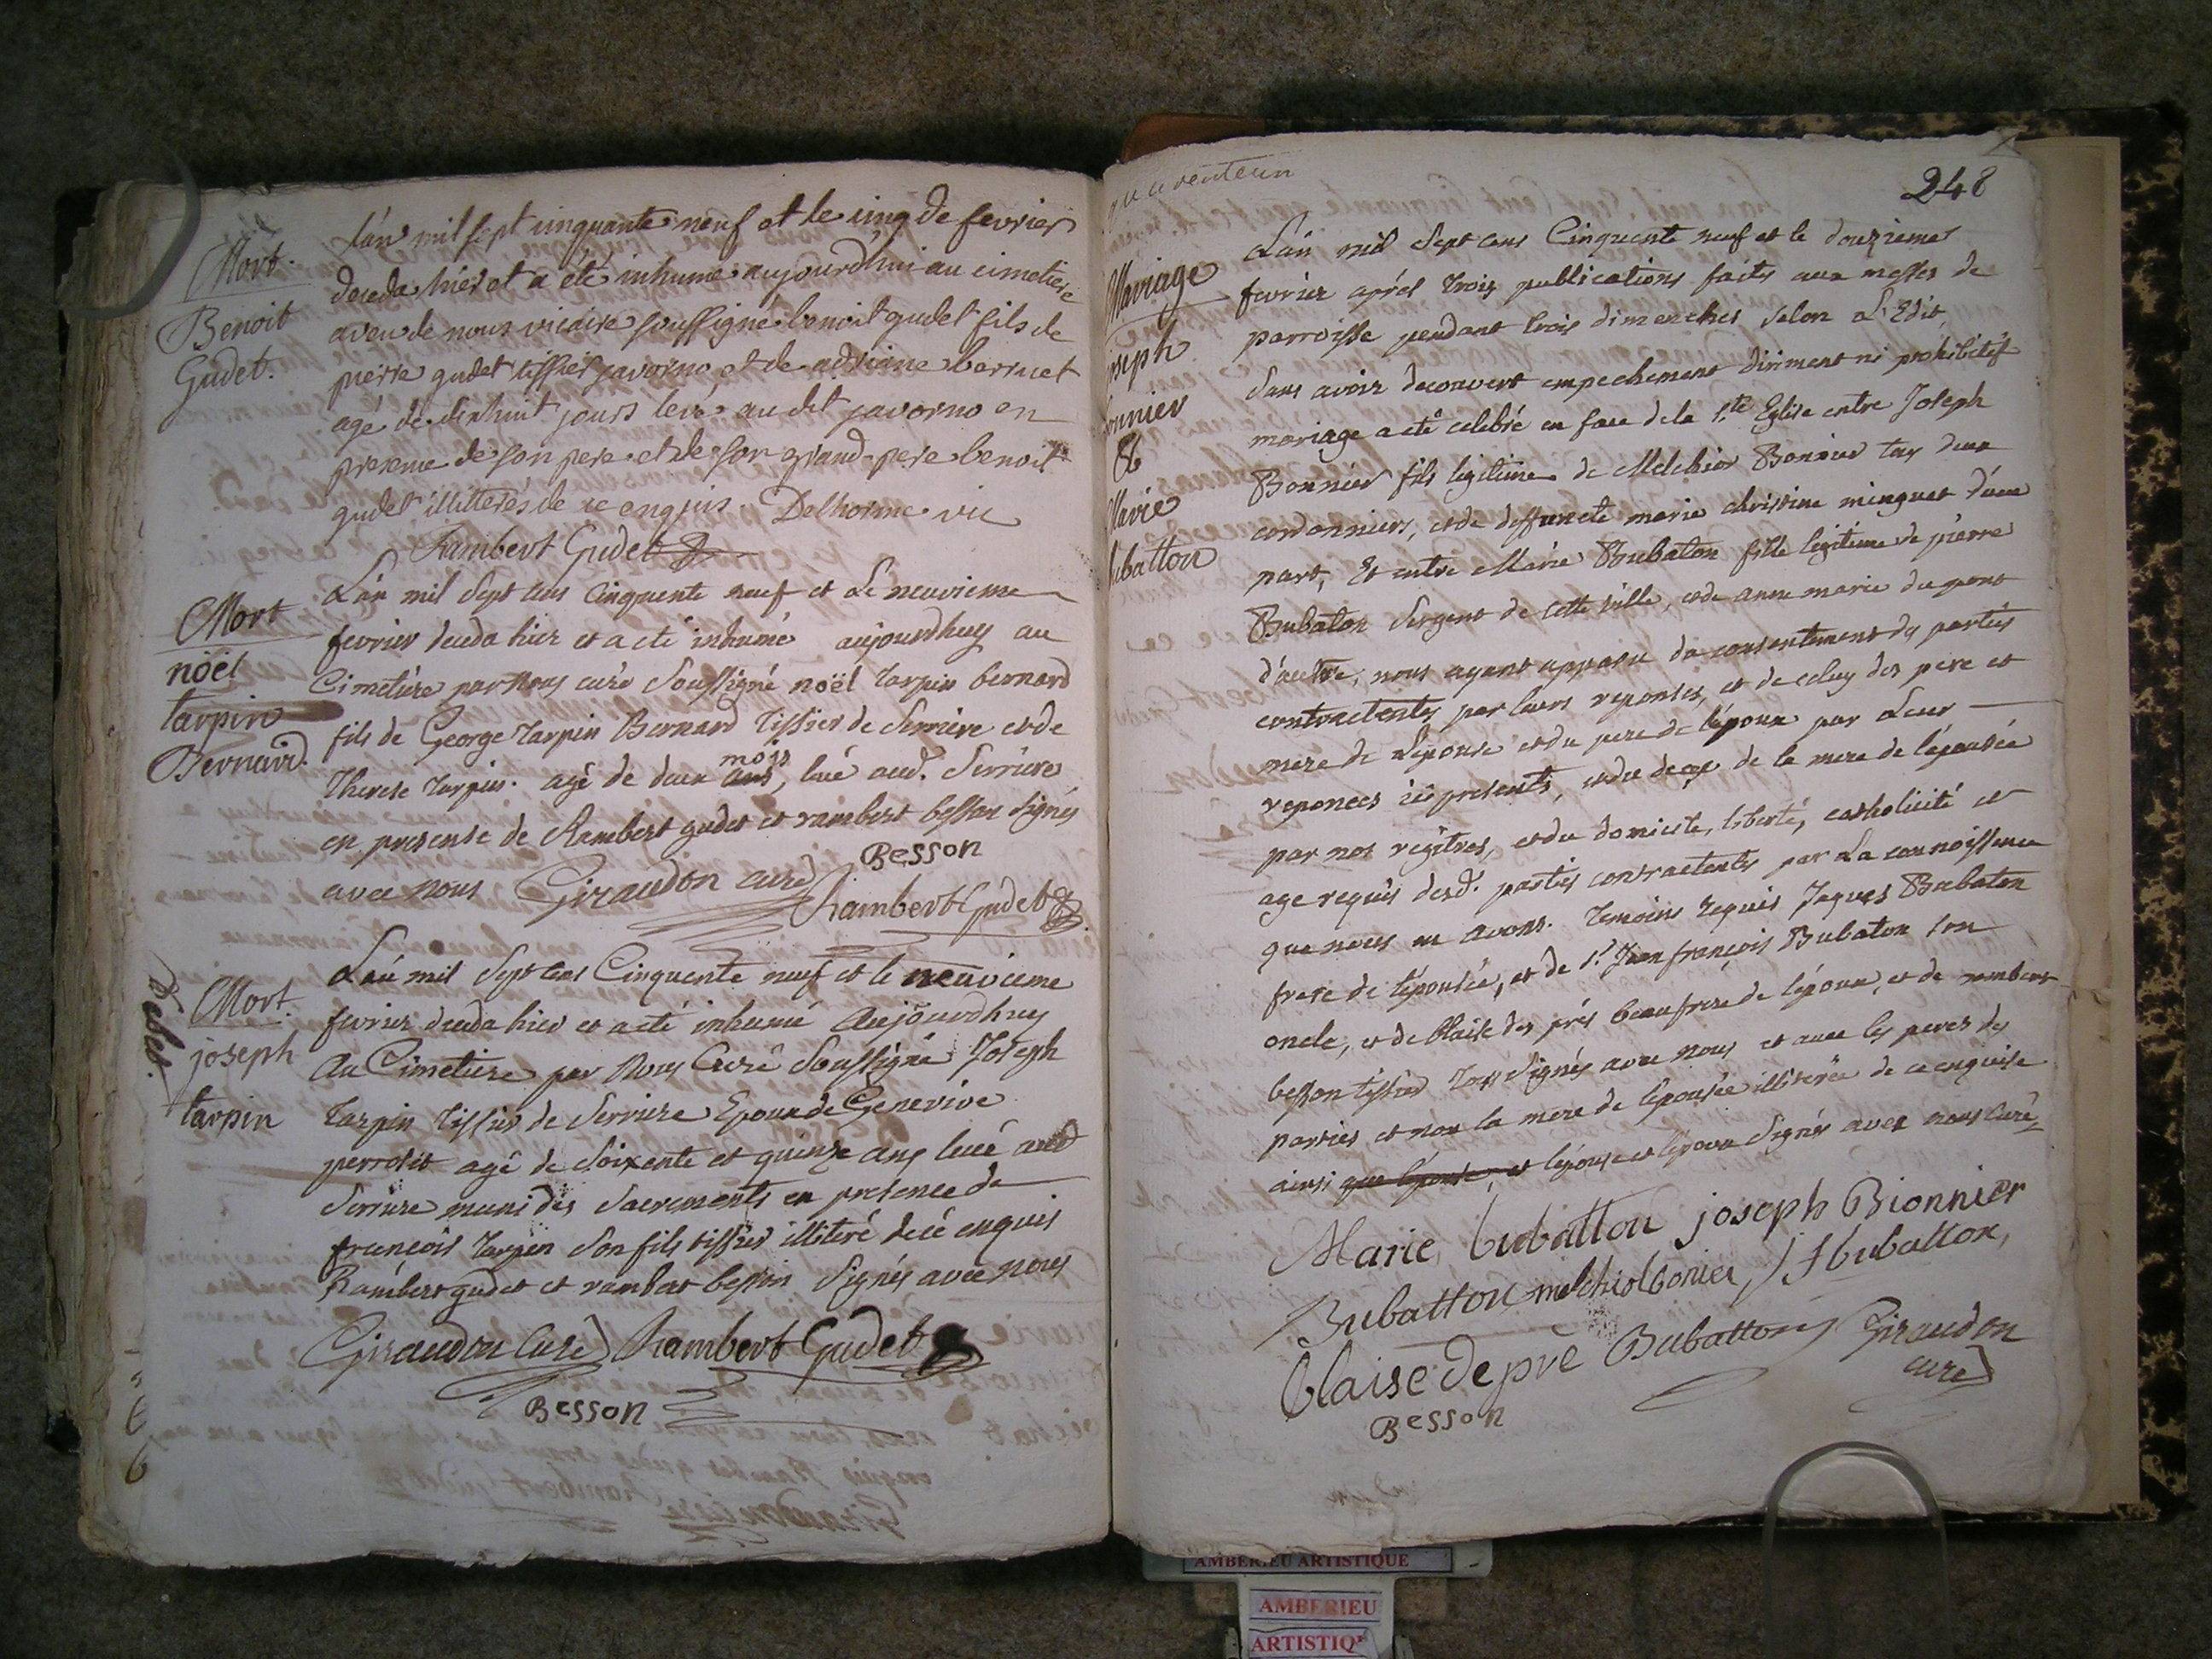 Mort.
Benoit
Gudet.
l'an mil sept cinquante neuf et le cinq de fevrier
deceda hier et a été inhumé aujourd'hui au cimetiere
aveu de nous vicaire soussigné benoit gudet fils de
pierre gudet tissier javorno et de adriane berruet
agé de dixhuit jours levé audit javorno en
presence de son pere et de son grand-pere benoit
gudet illitterés de ce enquis. Delhorme vic
Rambert Gudet
Mort
noël
tarpin
Bernard.
L'an mil Sept cens Cinquente neuf et Le neuvieme
fevrier deceda hier et a eté inhumé aujourdhuy au
Cimetiére par Nous curé Soussigné noël Tarpin bernard
fils de George Tarpin Bernard Tissier de Serriére et de
mois
Therese Tarpin. agé de deux ans, levé aud. Serriére
en presense de Rambert gudet et rambert besson signés
avec nous Giraudon curé Besson
Rambert Gudet
Debet.
Mort.
joseph
tarpin
L'an mil Sept cens Cinquente neuf et le neuvieme
fevrier deceda hier et a eté inhumé Aujourdhuy
Au Cimetiere par Nous Curé Soussigné Joseph
Tarpin Tissier de Serriere Epoux de Genevive
perrodit agé de Soixente et quinze ans levé aud
Serriere muni des Sacrements en presence de
francois Tarpin Son fils tissier illiteré de cé enquis
Rambert gudet et rambert besson Signés avec nous
Giraudon Curé Rambert Gudet
Besson
248
Mariage
oseph
onnier
&
Marie
ubatton
L'an mil Sept cens Cinquente neuf et le douzieme
fevrier aprés trois publications faites aux messes de
parroisse pendant trois dimenches selon L'Edit
Sans avoir decouvert empechement diriment ni prohibitif
mariage a eté celebré en face de la Ste Eglise entre Joseph
Bonnier fils legitime de Melchior Bonnier tous deux
cordonniers, et de deffuncte marie christine minguet d'une
part, Et entre Marie Bubaton fille legitime de pierre
Bubaton Sergent de cette ville, et de anne marie du pont
d'autre, nous ayant apparu du consentement des parties
contractentes par leurs reponses, et de celuy des pere et
mere de L'epouse et du pere de l'époux par Leur
reponces ici presents, et du decex de la mere de l'épousée
par nos régîtres, et du domicile, liberté, catholicité et
age requis desd. parties contractentes par La connoissence
que nous en avons. Temoins requis Jaques Bubaton
frere de l'épousée, et de Sr. Jean françois Bubaton son
oncle, et de blaise des prés beaufrere de l'époux, et de rambert
besson tissier tous Signés avec nous et avec les peres des
parties et non la mere de l'épousée illiterée de ce enquise
ainsi que l'épouse, et l'epouse et l'époux Signés avec nous Curé,
Marie bubatton joseph Bionnier
Bubatton melchiol bonier, Jf bubatton,
blaise depré Bubatton Giraudon
curé
Besson
AMBERIEU ARTISTIQUE
AMBERIEU
ARTISTIQ